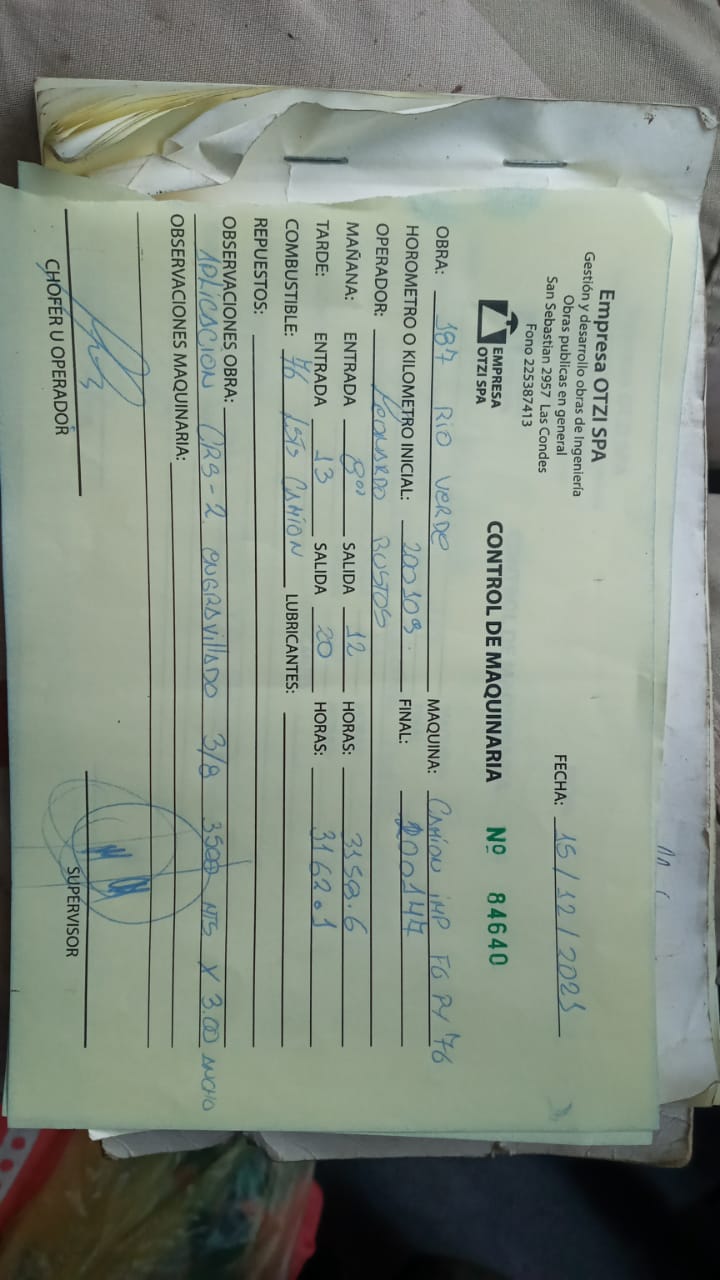 Empresa OTZI SPA
Gestión y desarrollo obras de Ingeniería
Obras publicas en general
San Sebastian 2957 Las Condes
Fono 225387413
EMPRESA
OTZI SPA
FECHA: 15/12/2021
CONTROL DE MAQUINARIA Nº 84640
OBRA: 187 RIO VERDE MAQUINA: CAMION IMP FG PY 76
HOROMETRO O KILOMETRO INICIAL: 200109 FINAL: 200147
OPERADOR: LEONARDO BUSTOS
MAÑANA: ENTRADA 8⁰⁰ SALIDA 12 HORAS: 3158.6
TARDE: ENTRADA 13 SALIDA 20 HORAS: 3162.1
COMBUSTIBLE: 76 LSTS CAMION LUBRICANTES:
REPUESTOS:
OBSERVACIONES OBRA:
APLICACION CRS-2 ENGRAVILLADO 3/8 3500 MTS X 3.00 ANCHO
OBSERVACIONES MAQUINARIA:
CHOFER U OPERADOR
SUPERVISOR